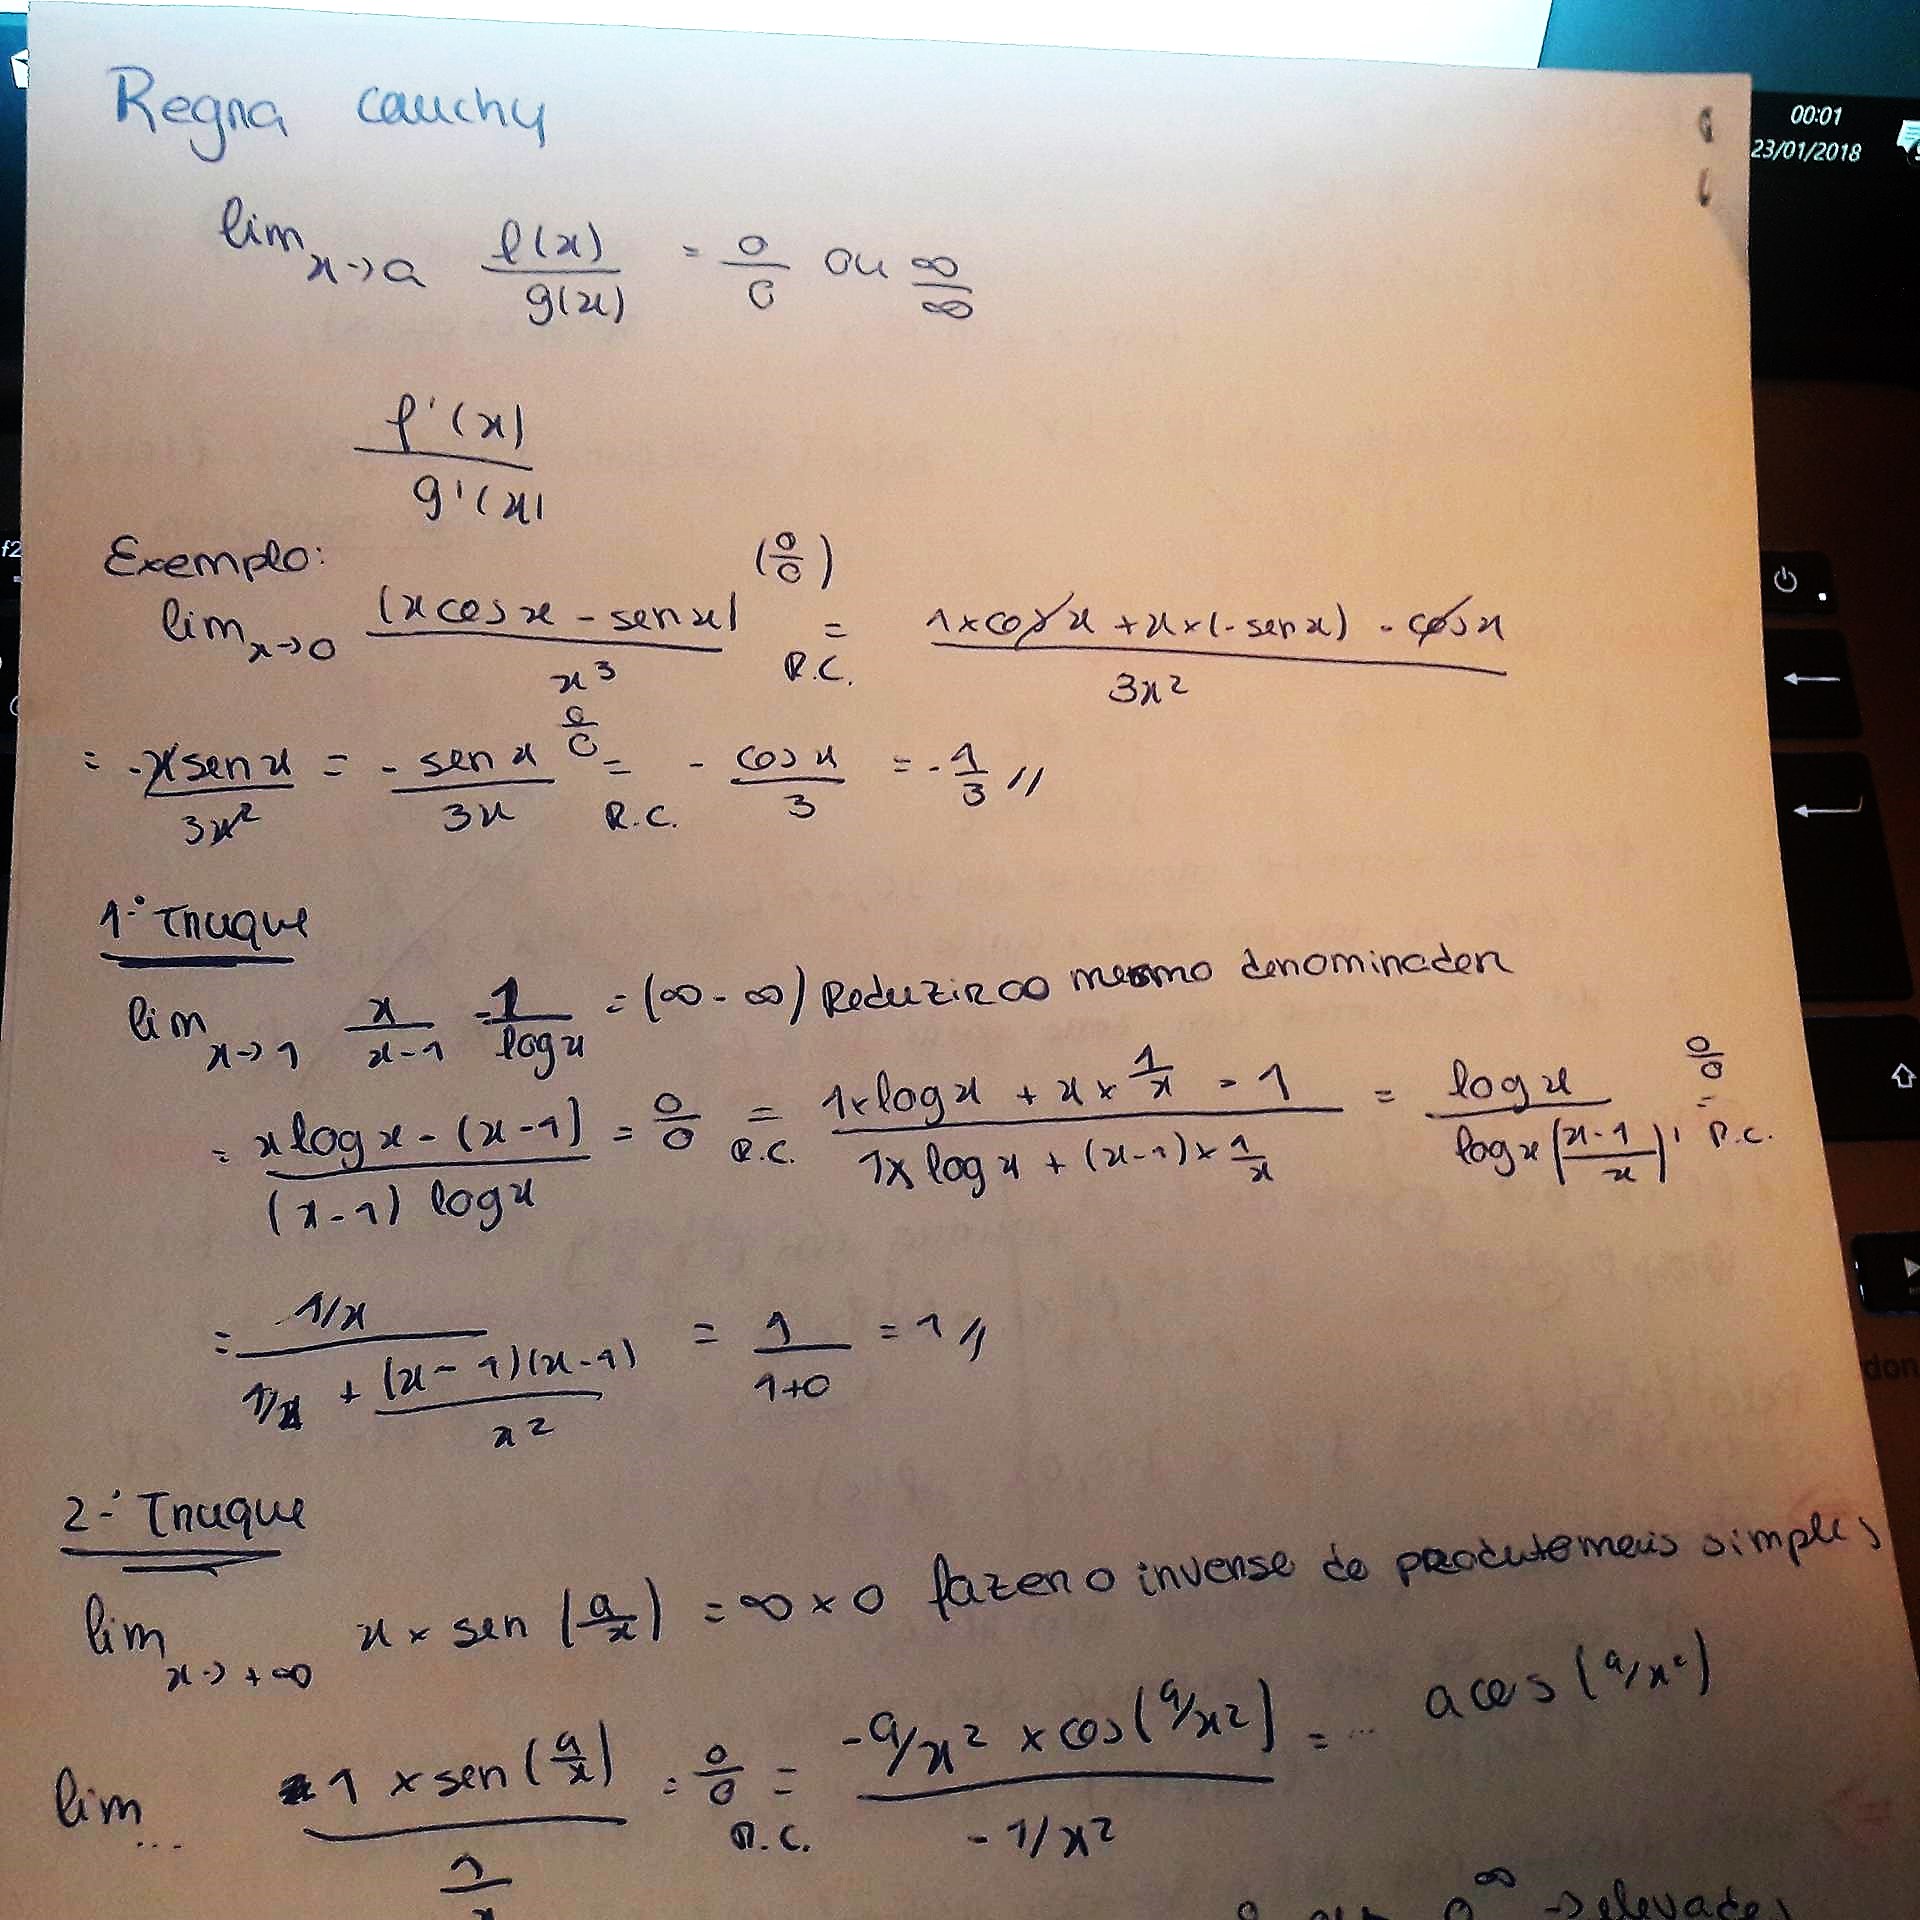 Regra cauchy
00:01
23/01/2018
lim x→a f(x)/g(x) = 0/0 ou ∞/∞
f'(x)/g'(x)
f2
Exemplo:
lim x→0 (x cos x - sen x)/x³ (0/0) = R.C. (1×cos x + x×(-sen x) - cos x)/3x²
= -x sen x/3x² = - sen x/3x 0/0 = R.C. - cos x/3 = -1/3 //
1º Truque
lim x→1 x/(x-1) - 1/log x = (∞-∞) Reduzir ao mesmo denominador
= (x log x - (x-1))/((x-1) log x) = 0/0 = R.C. (1×log x + x × 1/x - 1)/(1×log x + (x-1)× 1/x) = log x/(log x ((x-1)/x)) 0/0 = R.C.
= (1/x)/(1/x + (x-1)(x-1)/x²) = 1/(1+0) = 1 //
don
2º Truque
lim x→+∞ x × sen (a/x) = ∞×0 fazer o inverso do produto mais simples
lim ... (1 × sen (a/x))/(1/x) = 0/0 = R.C. (-a/x² × cos(a/x²))/(-1/x²) = ... a cos (a/x²)
∞ → elevades